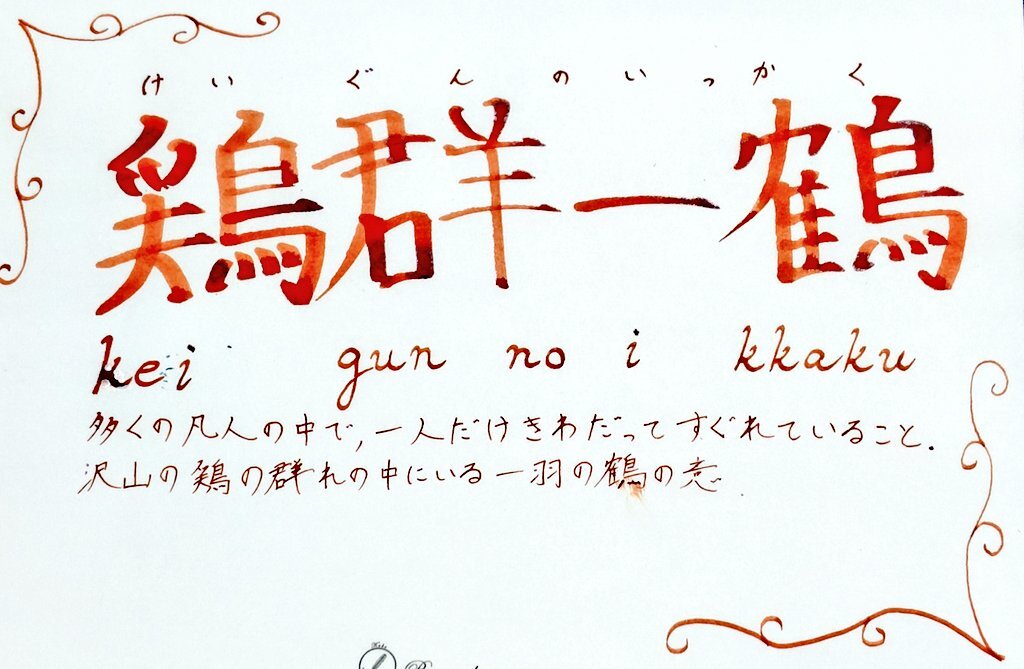 けいぐんのいっかく
鶏群一鶴
kei gun no i kkaku
多くの凡人の中で,一人だけきわだってすぐれていること.
沢山の鶏の群れの中にいる一羽の鶴の意